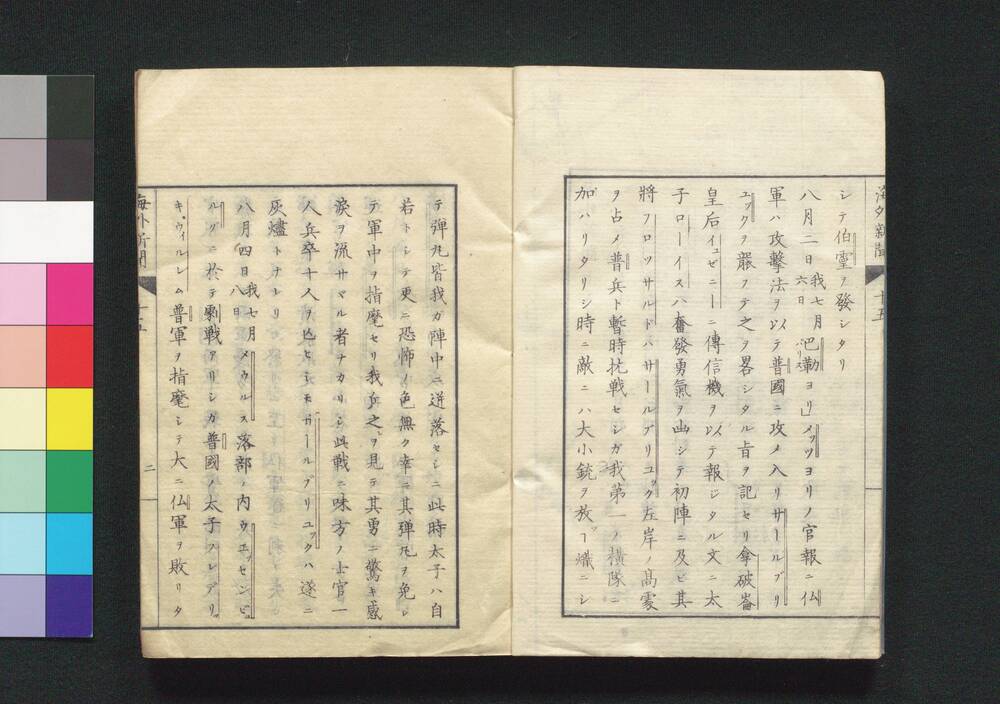 海外新聞 十五
シテ伯霊ヲ發シタリ
八月二日我七月六日巴勒ヨリ」メッツヨリノ官報ニ仏
軍ハ攻撃法ヲ以テ普國ニ攻メ入リサールブリ
ユックヲ嚴フテ之ヲ畧シタル旨ヲ記セリ拿破崙
皇后イュゼニーニ傳信機ヲ以テ報ジタル文ニ太
子ローイスハ奮發勇氣ヲ出シテ初陣ニ及ビ其
將フロッサルドハサールブリユック左岸ノ高處
ヲ占メ普兵ト暫時抗戦セシガ我第一ノ横隊ニ
加ハリタリシ時ニ敵ニハ大小銃ヲ放ツ熾ニシ
テ彈丸皆我ガ陣中ニ迸落セシニ此時太子ハ自
若トシテ更ニ恐怖ノ色無ク幸ニ其弾丸ヲ免レ
テ軍中ヲ指麾セリ我兵之ヲ見テ其勇ニ驚キ感
淚ヲ流サヾル者ナカリシ此戦ニ味方ノ士官一
人兵卒十人ヲ亡ヒシモサールブリユックハ遂ニ
灰燼トナレリ
八月四日我七月八日メウルス落部ノ内ウエッセンビュ
ルグニ於テ劇戦アリシガ普國ノ太子フレデリッ
キ、ウィルレム普軍ヲ指麾シテ大ニ仏軍ヲ敗リタ
海外新聞 十五 二